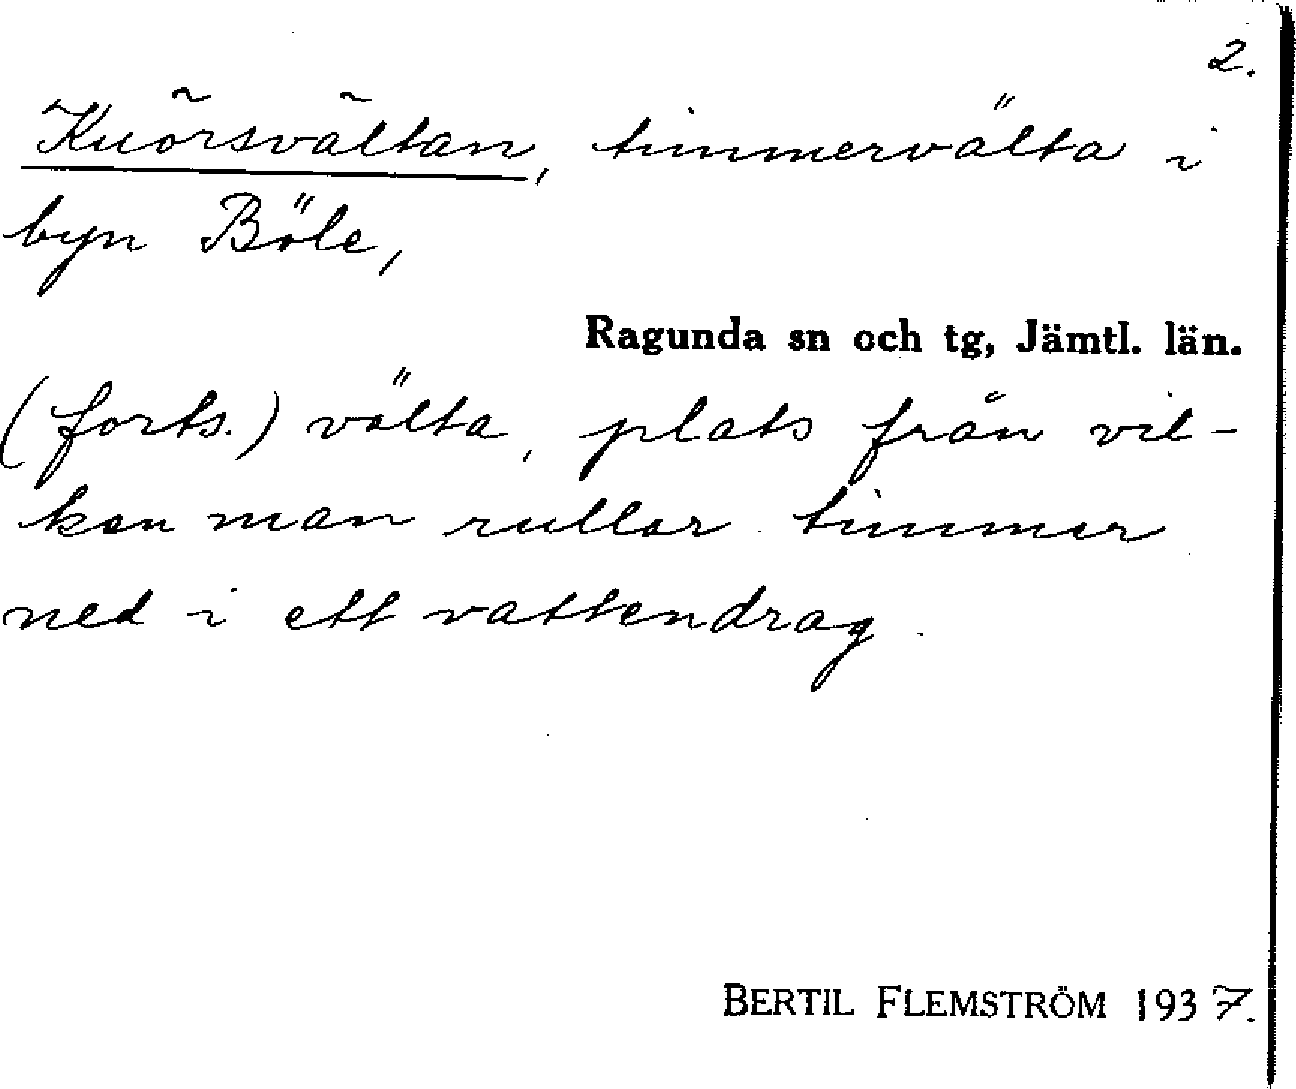 2.
Kuõrsvãltan, timmervälta i
byn Böle,
Ragunda sn och tg, Jämtl. län.
(forts.) välta, plats från vil-
ken man rullar timmer
ned i ett vattendrag.
BERTIL FLEMSTRÖM 1937.